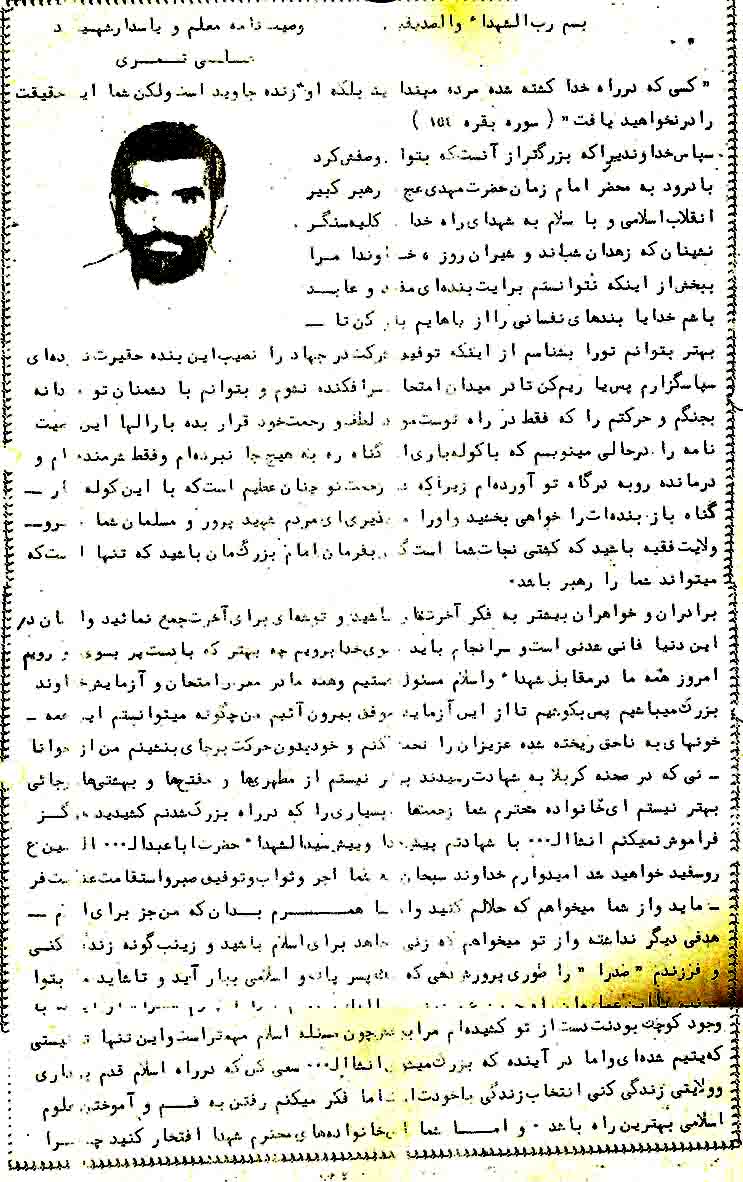 بسم رب الشهداء والصدیقین وصیت نامه معلم و پاسدار شهید
عباسی ثمری
" کسی که در راه خدا کشته شده مرده مپندارید بلکه او زنده جاوید است ولکن شما این حقیقت
را در نخواهید یافت " ( سوره بقره ۱۵٤ )
سپاس خداوندیرا که بزرگتر از آنست که بتوان وصفش کرد
با درود به محضر امام زمان حضرت مهدی عج رهبر کبیر
انقلاب اسلامی و با سلام به شهدای راه خدا کلیه سنگر
نشینان که زهدان شباند و شیران روز خداوندا مرا
ببخش از اینکه نتوانستم برایت بنده‌ای مفید و عابد
باشم خدایا بندهای نفسانی را از پاهایم باز کن تا ــ
بهتر بتوانم تورا بشناسم از اینکه توفیق شرکت در جهاد را نصیب این بنده حقیرت نموده‌ای
سپاسگزارم پس یاریم کن تا در میدان امتحان سرافکنده نشوم و بتوانم با دشمنان تو
بجنگم و حرکتم را که فقط در راه توست مورد لطف و رحمت خود قرار بده بارالها این وصیت
نامه را درحالی مینویسم که با کوله باری از گناه ره به هیچ جا نبرده‌ام و فقط شرمنده‌ام و
درمانده رو به درگاه تو آورده‌ام زیرا که رحمت تو چنان عظیم است که با این کوله بار ــ
گناه باز بنده‌ات را خواهی بخشید و اورا میپذیری ای مردم شهید پرور و مسلمان شما پیروــ
ولایت فقیه باشید که کشتی نجات شما است بفرمان امام بزرگ‌مان باشید که تنها است که
میتواند شما را رهبر باشد.
برادران و خواهران بیشتر به فکر آخرتتان باشید و توشه‌ای برای آخرت جمع نمائید
این دنیا فانی شدنی است و سرانجام باید بسوی خدا برویم چه بهتر که با دست پر بسوی او رویم
امروز همه ما در مقابل شهداء و اسلام مسئول هستیم وهمه ما در معرض امتحان و آزمایش خداوند
بزرگ میباشیم پس بکوشیم تا از این آزمایش موفق بیرون آئیم من چگونه میتوانستم این همه ــ
خونهای به ناحق ریخته شده عزیزان را تحمل کنم و خود بدون حرکت برجای بنشینم من از جوانا
ــ نی که در صحنه کربلا به شهادت رسیدند نیستم از مطهری‌ها و مفتح‌ها و بهشتی‌ها رجائی
بهتر نیستم ای خانواده محترم شما زحمتهای بسیاری را که در راه بزرگ شدنم کشیدید هرگز
فراموش نمیکنم انشاال... با شهادتم پیش خدا و پیش سیدالشهداء حضرت اباعبدال... الحسین ع
روسفید خواهید شد امیدوارم خداوند سبحان به شما اجر و ثواب و توفیق صبر و استقامت فر
ــ ماید واز شما میخواهم که حلالم کنید همسرم بدان که من جز برای اسلام ــ
هدفی دیگر نداشته واز تو میخواهم که زنی مجاهد برای اسلام باشید و زینب گونه زندگی کنی
و فرزندم " صدرا " را طوری پرورش دهی که پسر پاک و اسلامی ببار آید و تا شاید بتوا
وجود کوچک بودنت دست از تو کشیده‌ام چون مسئله اسلام مهمتر است و این تنها تو نیستی
که یتیم شده‌ای و اما در آینده که بزرگ میشوی انشاال... سعی کن که در راه اسلام قدم برداری
و ولایتی زندگی کنی انتخاب زندگی با خودت است اما فکر میکنم رفتن به قم و آموختن علوم
اسلامی بهترین راه باشد . و اما شما ای خانواده‌های محترم شهدا افتخار کنید چرا